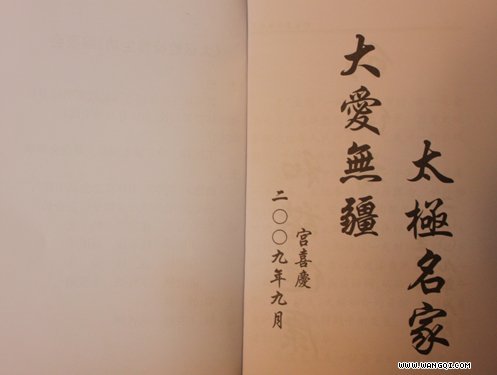 太極名家
大愛無疆
宮喜慶
二〇〇九年九月
WWW.WANGQI.COM